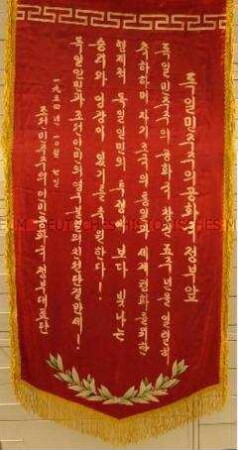 독일민주주의공화국 정부 앞
독일민주주의 공화국 창건 五주년을 열렬히
축하하며 자기 조국의 통일과 세계 평화를 위한
형제적 독일 인민의 투쟁에 보다 빛나는
승리와 영광이 있기를 축원한다!
독일인민과 조선인민의 친선단결만세!
一九五四년 一〇월
조선민주주의인민공화국 정부대표단